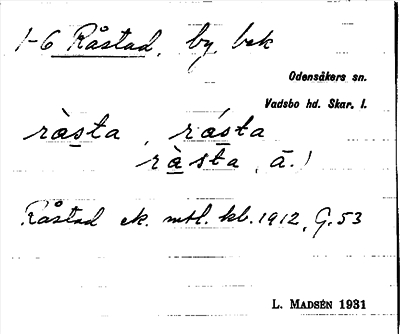 1-6 Råstad, by, bek
Odensåkers sn.
Vadsbo hd. Skar. l.
ràsta, rásta
ràsta, ā.)
Råstad ek. mtl. kb. 1912, G. 53
L. MADSÉN 1931